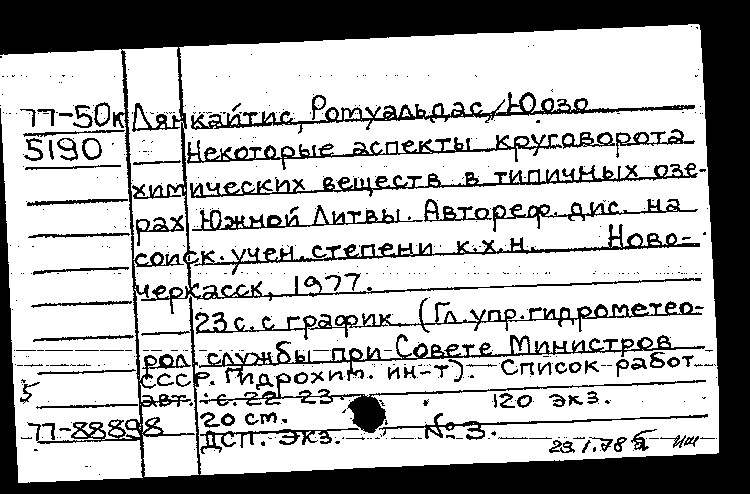 77-50к Лянкайтис, Ромуальдас, Юозо
5190 Некоторые аспекты круговорота
химических веществ в типичных озе-
рах Южной Литвы. Автореф. дис. на
соиск. учен. степени к.х.н. Ново-
черкасск, 1977.
23 с. с график (Гл. упр. гидрометео-
рол. службы при Совете Министров
СССР. Гидрохим. ин-т). Список работ
5 авт.: с. 22-23. 120 экз.
77-88898 20 см.
ДСП. Экз. № 3.
23.1.78